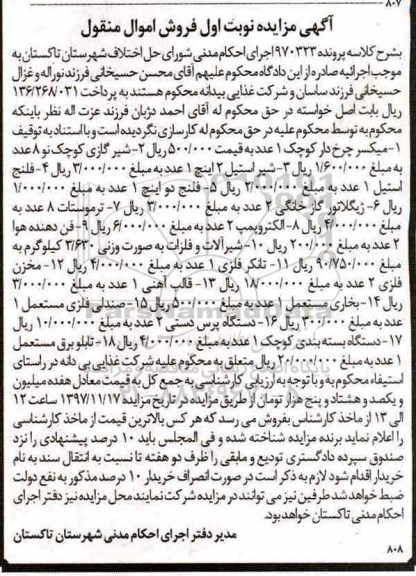 ۸۰۷
آگهی مزایده نوبت اول فروش اموال منقول
بشرح کلاسه پرونده ۹۷۰۳۲۳ اجرای احکام مدنی شورای حل اختلاف شهرستان تاکستان به
موجب اجرائیه صادره از این دادگاه محکوم علیهم آقای محسن حسیخانی فرزند نوراله و غزال
حسیخانی فرزند ساسان و شرکت غذایی بیدانه محکوم هستند به پرداخت ۱۳۶/۲۶۸/۰۳۱
ریال بابت اصل خواسته در حق محکوم له آقای احمد دژبان فرزند عزت اله نظر باینکه
محکوم به توسط محکوم علیه در حق محکوم له کارسازی نگردیده است و با استناد به توقیف
۱-میکسر چرخ دار کوچک ۱ عدد به قیمت ۵۰۰/۰۰۰ ریال ۲-شیر گازی کوچک نو ۸ عدد
به مبلغ ۱/۶۰۰/۰۰۰ ریال ۳-شیر استیل ۲ اینچ ۱ عدد به مبلغ ۳/۰۰۰/۰۰۰ ریال ۴-فلنج
استیل ۱ عدد به مبلغ ۲/۰۰۰/۰۰۰ ریال ۵- فلنج دو اینچ ۱ عدد به مبلغ ۱/۰۰۰/۰۰۰
ریال ۶- ژیگلاتور گاز خانگی ۲ عدد به مبلغ ۳/۰۰۰/۰۰۰ ریال ۷- ترموستات ۸ عدد به
مبلغ ۴/۰۰۰/۰۰۰ ریال ۸-الکتروپمپ ۲ عدد به مبلغ ۶/۰۰۰/۰۰۰ ریال ۹-فن دهنده هوا
۲ عدد به مبلغ ۲۰۰/۰۰۰ ریال ۱۰-شیرآلات و فلزات به صورت وزنی ۳/۶۳۰ کیلوگرم به
مبلغ ۹۰/۷۵۰/۰۰۰ ریال ۱۱- تانکر فلزی ۱ عدد به مبلغ ۴/۰۰۰/۰۰۰ ریال ۱۲- مخزن
فلزی ۲ عدد به مبلغ ۱۸/۰۰۰/۰۰۰ ریال ۱۳- قالب آهنی ۱ عدد به مبلغ ۳/۰۰۰/۰۰۰
ریال ۱۴-بخاری مستعمل ۱ عدد به مبلغ ۵۰۰/۰۰۰ ریال ۱۵- صندلی فلزی مستعمل ۱
عدد به مبلغ ۳۰۰/۰۰۰ ریال ۱۶-دستگاه پرس دستی ۲ عدد به مبلغ ۱۰/۰۰۰/۰۰۰ ریال
۱۷-دستگاه بسته بندی کوچک ۱ عدد به مبلغ ۴/۰۰۰/۰۰۰ ریال ۱۸- تابلو برق مستعمل
۱ عدد به مبلغ ۲۰/۰۰۰/۰۰۰ ریال متعلق به محکوم علیه شرکت غذایی بی دانه در راستای
استیفاء محکوم به و با توجه به ارزیابی کارشناسی به جمع کل به قیمت معادل هفده میلیون
و یکصد و هشتاد و پنج هزار تومان از طریق مزایده در تاریخ مزایده ۱۳۹۷/۱۱/۱۷ ساعت ۱۲
الی ۱۳ از ماخذ کارشناس بفروش می رسد که هر کس بالاترین قیمت از ماخذ کارشناسی
را اعلام نماید برنده مزایده شناخته شده و فی المجلس باید ۱۰ درصد پیشنهادی را نزد
صندوق سپرده دادگستری تودیع و مابقی را ظرف دو هفته تا نسبت به انتقال سند به نام
خریدار اقدام شود لازم به ذکر است در صورت انصراف خریدار ۱۰ درصد مذکور به نفع دولت
ضبط خواهد شد طرفین نیز می توانند در مزایده شرکت نمایند محل مزایده نیز دفتر اجرای
احکام مدنی تاکستان خواهد بود.
مدیر دفتر اجرای احکام مدنی شهرستان تاکستان
۸۰۸